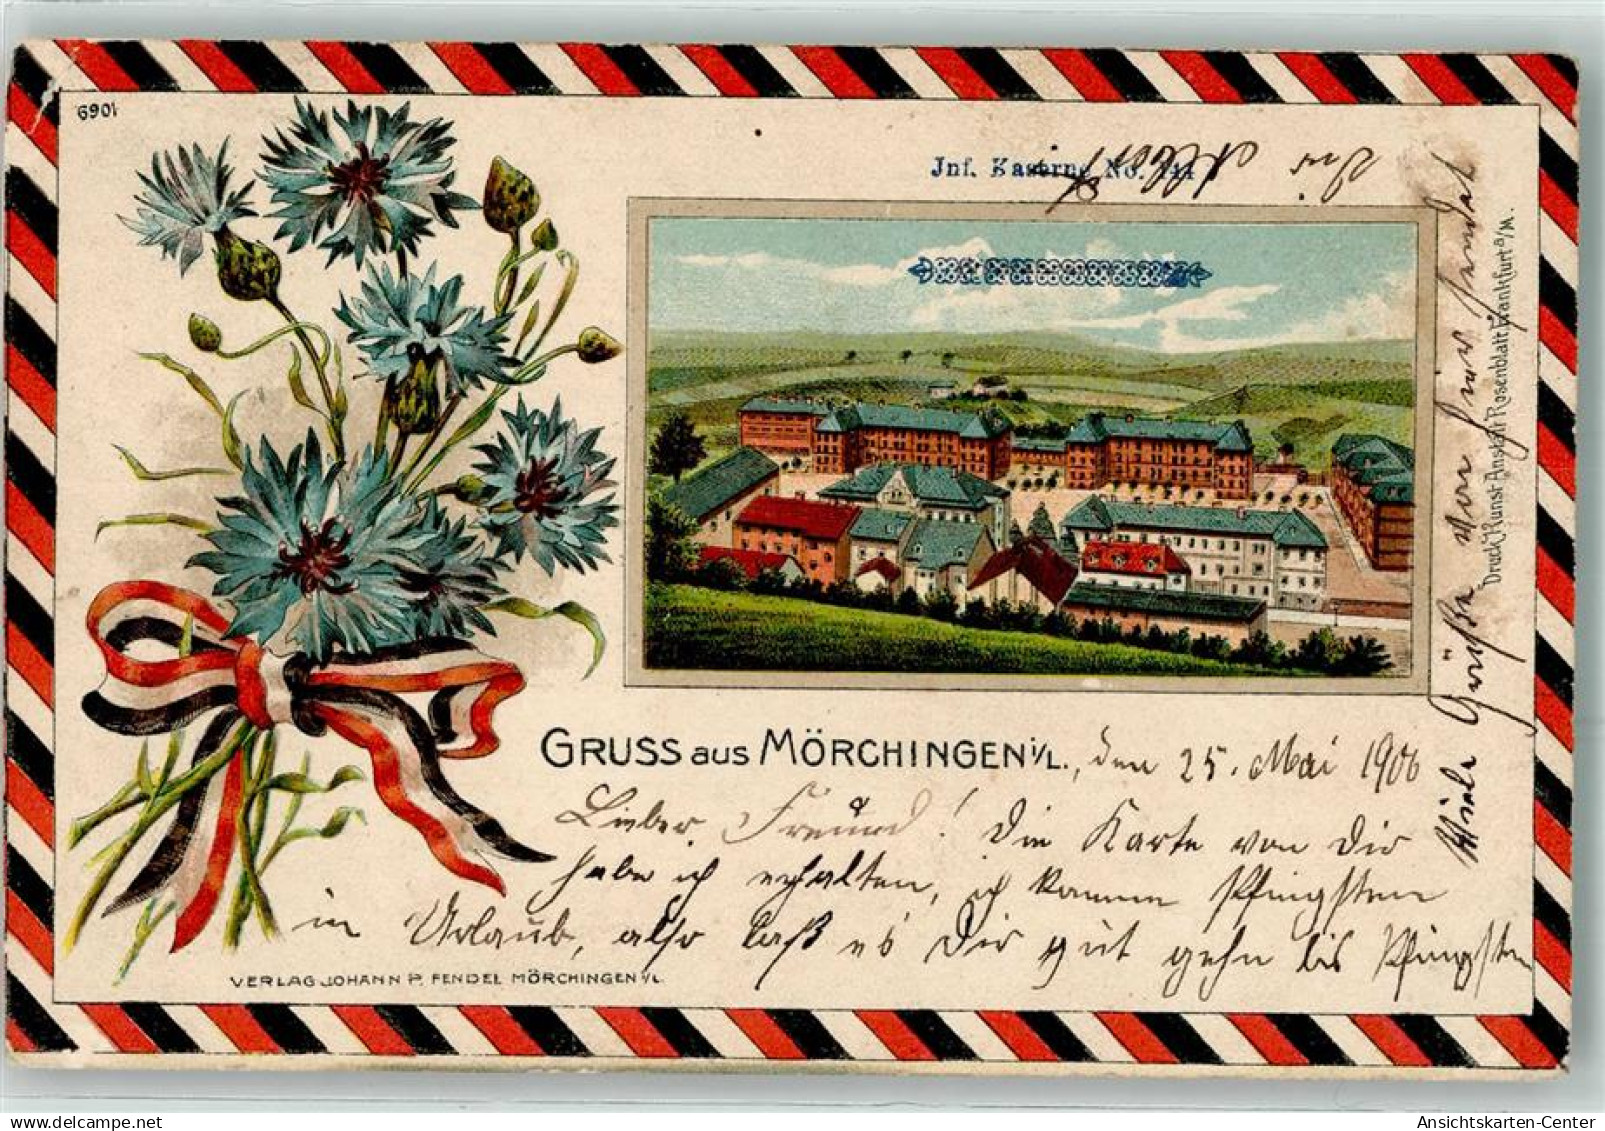 6901
Jnf. Kaserne No. 144
Druck J. Kunst Anstalt Rosenblatt, Frankfurt a/M.
GRUSS aus MÖRCHINGEN i/L., den 25. Mai 1906
Lieber Freund! Die Karte von Dir
habe ich erhalten, ich komme Pfingsten
in Urlaub, also laß es Dir gut gehn bis Pfingsten
Viele Grüße von hier sendet
Dir
VERLAG JOHANN P. FENDEL MÖRCHINGEN i/L.
www.ansichtskartenversand.com
Ansichtskarten-Center